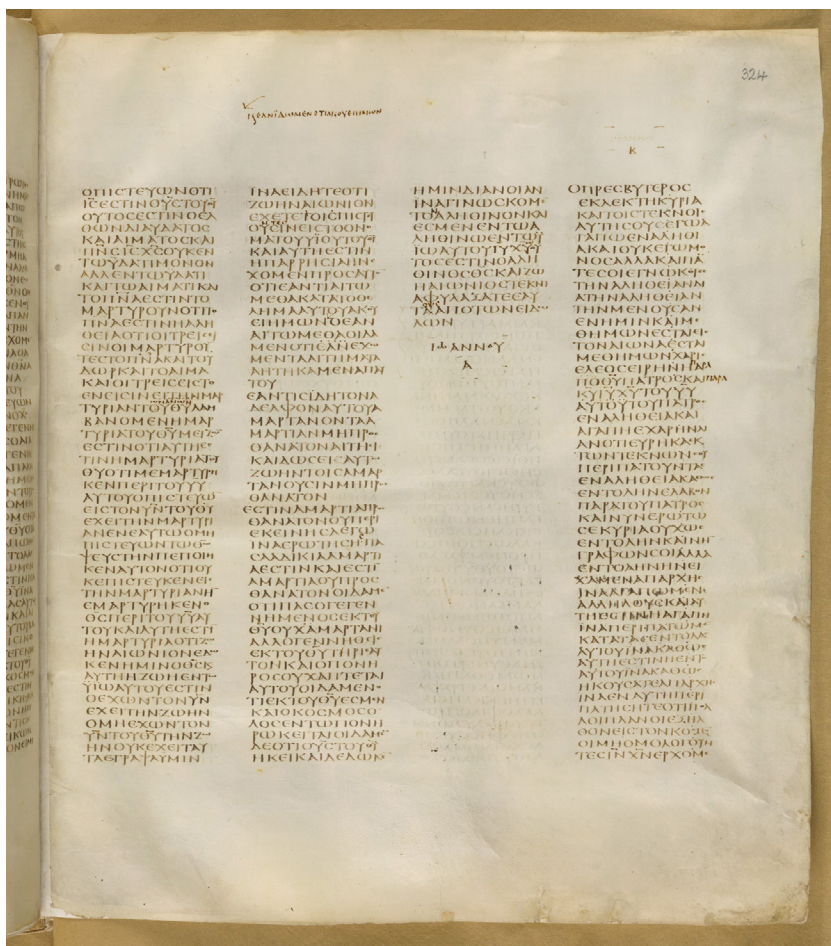 ΙΔΕΑΝΙΔΩΜΕΝΟΤΙΑΚΟΥΕΙΗΜΩΝ
324
Β
ΟΠΙϹΤΕΥΩΝΟΤΙ
ΙϹΕϹΤΙΝΟΥϹΤΟΥΘΥ
ΟΥΤΟϹΕϹΤΙΝΟΕΛ
ΘΩΝΔΙΑΥΔΑΤΟϹ
ΚΑΙΑΙΜΑΤΟϹΚΑΙ
ΠΝϹΙϹΧϹΟΥΚΕΝ
ΤΩΥΔΑΤΙΜΟΝΟΝ
ΑΛΛΕΝΤΩΥΔΑΤΙ
ΚΑΙΤΩΑΙΜΑΤΙΚΑΙ
ΤΟΠΝΑΕϹΤΙΝΤΟ
ΜΑΡΤΥΡΟΥΝΟΤΙΤΟ
ΠΝΑΕϹΤΙΝΗΑΛΗ
ΘΕΙΑΟΤΙΟΙΤΡΕΙϹΕΙ
ϹΙΝΟΙΜΑΡΤΥΡΟΥΝ
ΤΕϹΤΟΠΝΑΚΑΙΤΟΥ
ΔΩΡΚΑΙΤΟΑΙΜΑ
ΚΑΙΟΙΤΡΕΙϹΕΙϹΤΟ
ΕΝΕΙϹΙΝΕΙΤΗΝΜΑΡ
ΤΥΡΙΑΝΤΟΥΘΥΛΑΜ
ΒΑΝΟΜΕΝΗΜΑΡ
ΤΥΡΙΑΤΟΥΘΥΜΕΙΖΩ
ΕϹΤΙΝΟΤΙΑΥΤΗΕϹ
ΤΙΝΗΜΑΡΤΥΡΙΑΤΟΥ
ΘΥΟΤΙΜΕΜΑΡΤΥΡΗ
ΚΕΝΠΕΡΙΤΟΥΥΥ
ΑΥΤΟΥΟΠΙϹΤΕΥΩ
ΕΙϹΤΟΝΥΝΤΟΥΘΥ
ΕΧΕΙΤΗΝΜΑΡΤΥΡΙ
ΑΝΕΝΕΑΥΤΩΟΜΗ
ΠΙϹΤΕΥΩΝΤΩΘΩ
ΨΕΥϹΤΗΝΠΕΠΟΙΗ
ΚΕΝΑΥΤΟΝΟΤΙΟΥ
ΚΕΠΙϹΤΕΥΚΕΝΕΙϹ
ΤΗΝΜΑΡΤΥΡΙΑΝΗ
ΕΜΑΡΤΥΡΗΚΕΝΟ
ΘϹΠΕΡΙΤΟΥΥΥΑΥ
ΤΟΥΚΑΙΑΥΤΗΕϹΤΙ
ΗΜΑΡΤΥΡΙΑΟΤΙΖΩ
ΗΝΑΙΩΝΙΟΝΕΔΩ
ΚΕΝΗΜΙΝΟΘϹΚΑΙ
ΑΥΤΗΗΖΩΗΕΝΤΩ
ΥΙΩΑΥΤΟΥΕϹΤΙΝ
ΟΕΧΩΝΤΟΝΥΝ
ΕΧΕΙΤΗΝΖΩΗΝ
ΟΜΗΕΧΩΝΤΟΝ
ΥΝΤΟΥΘΥΤΗΝΖΩ
ΗΝΟΥΚΕΧΕΙΤΑΥ
ΤΑΕΓΡΑΨΑΥΜΙΝ
ΙΝΑΕΙΔΗΤΕΟΤΙ
ΖΩΗΝΑΙΩΝΙΟΝ
ΕΧΕΤΕΤΟΙϹΠΙϹΤΕΥ
ΟΥϹΙΝΕΙϹΤΟΟΝΟ
ΜΑΤΟΥΥΙΟΥΤΟΥΘΥ
ΚΑΙΑΥΤΗΕϹΤΙΝ
ΗΠΑΡΡΗϹΙΑΗΝΕ
ΧΟΜΕΝΠΡΟϹΑΥΤΟ
ΟΤΙΕΑΝΤΙΑΙΤΩ
ΜΕΘΑΚΑΤΑΤΟΘΕ
ΛΗΜΑΑΥΤΟΥΑΚΟΥ
ΕΙΗΜΩΝΟΕΑΝ
ΑΙΤΩΜΕΘΑΟΙΔΑ
ΜΕΝΟΤΙΕΧΟΜΕΝ
ΤΑΑΙΤΗΜΑΤΑ
ΑΗΤΗΚΑΜΕΝΑΠΑΥ
ΤΟΥ
ΕΑΝΤΙϹΙΔΗΤΟΝΑ
ΔΕΛΦΟΝΑΥΤΟΥΑ
ΜΑΡΤΑΝΟΝΤΑΑ
ΜΑΡΤΙΑΝΜΗΠΡΟϹ
ΘΑΝΑΤΟΝΑΙΤΗϹΙ
ΚΑΙΔΩϹΕΙΑΥΤΩ
ΖΩΗΝΤΟΙϹΑΜΑΡ
ΤΑΝΟΥϹΙΝΜΗΠΡΟϹ
ΘΑΝΑΤΟΝ
ΕϹΤΙΝΑΜΑΡΤΙΑΠΡΟϹ
ΘΑΝΑΤΟΝΟΥΠΕΡΙ
ΕΚΕΙΝΗϹΛΕΓΩ
ΙΝΑΕΡΩΤΗϹΗΠΑ
ϹΑΑΔΙΚΙΑΑΜΑΡΤΙ
ΑΕϹΤΙΝΚΑΙΕϹΤΙ
ΑΜΑΡΤΙΑΟΥΠΡΟϹ
ΘΑΝΑΤΟΝΟΙΔΑΜΕ
ΟΤΙΠΑϹΟΓΕΓΕΝ
ΝΗΜΕΝΟϹΕΚΤΟΥ
ΘΥΟΥΧΑΜΑΡΤΑΝΙ
ΑΛΛΟΓΕΝΝΗΘΕΙϹ
ΕΚΤΟΥΘΥΤΗΡΙΕΑΥ
ΤΟΝΚΑΙΟΠΟΝΗ
ΡΟϹΟΥΧΑΠΤΕΤΑΙ
ΑΥΤΟΥΟΙΔΑΜΕΝ
ΤΙΕΚΤΟΥΘΥΕϹΜΕΝ
ΚΑΙΟΚΟϹΜΟϹΟ
ΛΟϹΕΝΤΩΠΟΝΗ
ΡΩΚΕΙΤΑΙΟΙΔΑΜΕ
ΔΕΟΤΙΟΥϹΤΟΥΘΥ
ΗΚΕΙΚΑΙΔΕΔΩΚΕ
ΗΜΙΝΔΙΑΝΟΙΑΝ
ΙΝΑΓΙΝΩϹΚΟΜΕ
ΤΟΑΛΗΘΙΝΟΝΚΑΙ
ΕϹΜΕΝΕΝΤΩΑ
ΛΗΘΙΝΩΕΝΤΩΥ
ΙΩΑΥΤΟΥΙΥΧΥΟΥ
ΤΟϹΕϹΤΙΝΟΑΛΗ
ΘΙΝΟϹΘϹΚΑΙΖΩ
ΗΑΙΩΝΙΟϹΤΕΚΝΙ
ΑΦΥΛΑΞΑΤΕΕΑΥ
ΤΑΑΠΟΤΩΝΕΙΔΩ
ΛΩΝ
ΙΩΑΝΝΟΥ
Α
ΟΠΡΕϹΒΥΤΕΡΟϹ
ΕΚΛΕΚΤΗΚΥΡΙΑ
ΚΑΙΤΟΙϹΤΕΚΝΟΙϹ
ΑΥΤΗϹΟΥϹΕΓΩΑ
ΓΑΠΩΕΝΑΛΗΘΙ
ΑΚΑΙΟΥΚΕΓΩΜΟ
ΝΟϹΑΛΛΑΚΑΙΠΑ
ΤΕϹΟΙΕΓΝΩΚΟΤΕϹ
ΤΗΝΑΛΗΘΕΙΑΝΔΙ
ΑΤΗΝΑΛΗΘΕΙΑΝ
ΤΗΝΜΕΝΟΥϹΑΝ
ΕΝΗΜΙΝΚΑΙΜΕ
ΘΗΜΩΝΕϹΤΑΙΕΙϹ
ΤΟΝΑΙΩΝΑΕϹΤΑΙ
ΜΕΘΗΜΩΝΧΑΡΙϹ
ΕΛΕΟϹΕΙΡΗΝΗΠΑΡΑ
ΘΥΠΑΤΡΟϹΚΑΙΠΑΡΑ
ΚΥΙΥΧΥΤΟΥΥΥ
ΑΥΤΟΥΤΟΥΠΑΤΡΟϹ
ΕΝΑΛΗΘΕΙΑΚΑΙ
ΑΓΑΠΗΕΧΑΡΗΝΛΙ
ΑΝΟΤΙΕΥΡΗΚΑΕΚ
ΤΩΝΤΕΚΝΩΝϹΟΥ
ΠΕΡΙΠΑΤΟΥΝΤΑϹ
ΕΝΑΛΗΘΕΙΑΚΑΘΩϹ
ΕΝΤΟΛΗΝΕΛΑΒΟΝ
ΠΑΡΑΤΟΥΠΑΤΡΟϹ
ΚΑΙΝΥΝΕΡΩΤΩ
ϹΕΚΥΡΙΑΟΥΧΩϹ
ΕΝΤΟΛΗΝΚΑΙΝΗ
ΓΡΑΦΩΝϹΟΙΑΛΛΑ
ΕΝΤΟΛΗΝΗΝΕΙ
ΧΑΜΕΝΑΠΑΡΧΗϹ
ΙΝΑΑΓΑΠΩΜΕΝ
ΑΛΛΗΛΟΥϹΚΑΙΑΥ
ΤΗΕϹΤΙΝΗΑΓΑΠΗ
ΙΝΑΠΕΡΙΠΑΤΩΜΕ
ΚΑΤΑΤΑϹΕΝΤΟΛΑϹ
ΑΥΤΟΥΙΝΑΚΑΘΩϹ
ΗΚΟΥϹΑΤΕΑΠΑΡΧΗϹ
ΙΝΑΕΝΑΥΤΗΠΕΡΙ
ΠΑΤΗϹΗΤΕΟΤΙΠΟΛ
ΛΟΙΠΛΑΝΟΙΕΞΗΛ
ΘΟΝΕΙϹΤΟΝΚΟϹΜΟ
ΟΙΜΗΟΜΟΛΟΓΟΥΝ
ΤΕϹΙΝΧΝΕΡΧΟΜΕ